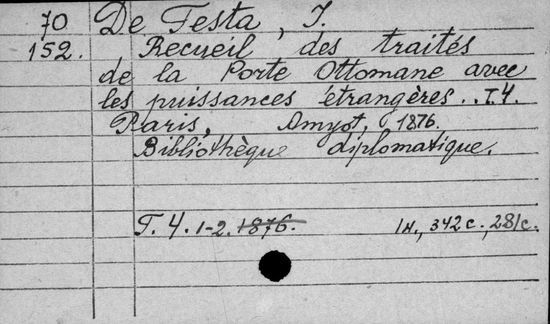 70 De Testa, I.
152. Recueil des traités
de la Porte Ottomane avec
les puissances étrangères.. T.4.
Paris, Amyot, 1876.
Bibliothèque diplomatique.
T. 4. 1-2. 1876. IH., 342 c., 281 c.